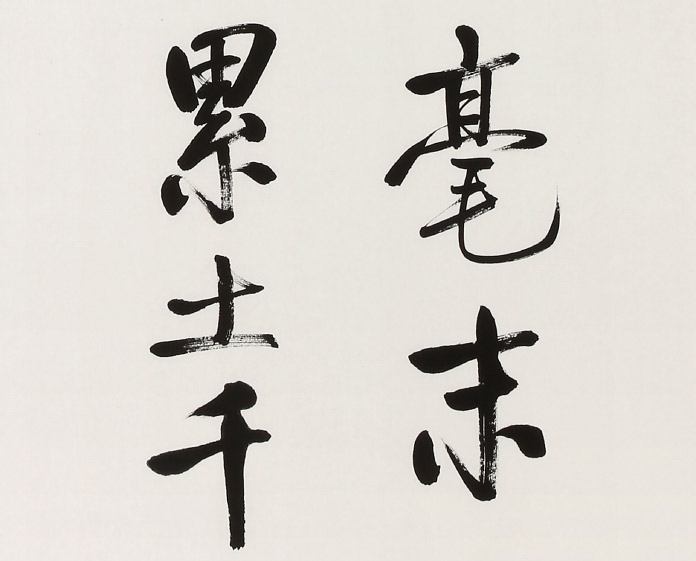 毫末
累土千